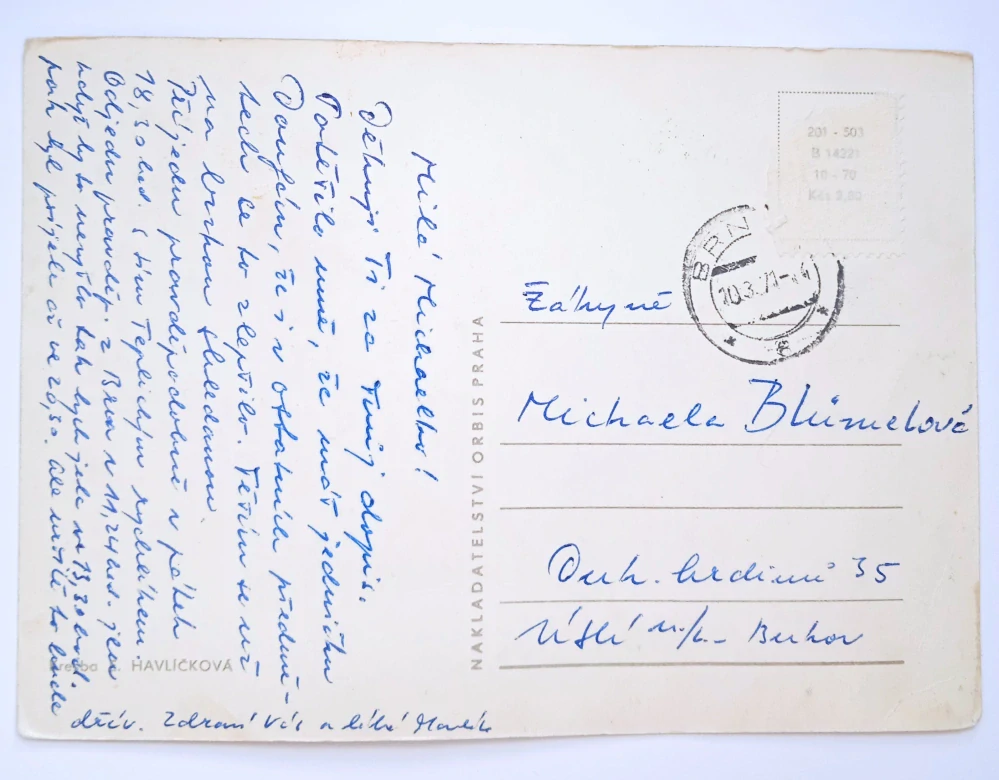 Milá Michaelko!
Děkuji Ti za Tvůj dopis.
Potěšilo mně, že máš jedničku
Doufám, že i v ostatních předmě-
tech se to zlepšilo. Těším se už
na brzkou shledanou.
Přijedu pravděpodobně v pátek
18,30 hod. s tím Teplickým rychlíkem.
Odjedu pravděp. z Brna v 11,24 hod. jen
kdyby to nevyšlo tak bych jela ve 13,30 hod.
pak bych přijela až ve 20,30. ale určitě to bude
dřív. Zdraví Vás a líbá
Kresba HAVLÍČKOVÁ
NAKLADATELSTVÍ ORBIS PRAHA
201 - 503
B 14221
10 - 70
Kčs 0,80
BRN
10.3.71
Žákyně
Michaela Blümelová
Duk. hrdinů 35
Ústí n/L - Bukov